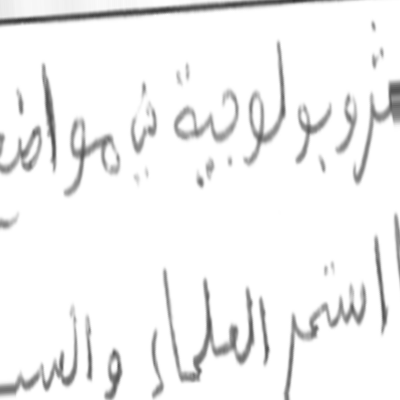 ثروبولوجية في مواضع
استمر العلماء والسـ